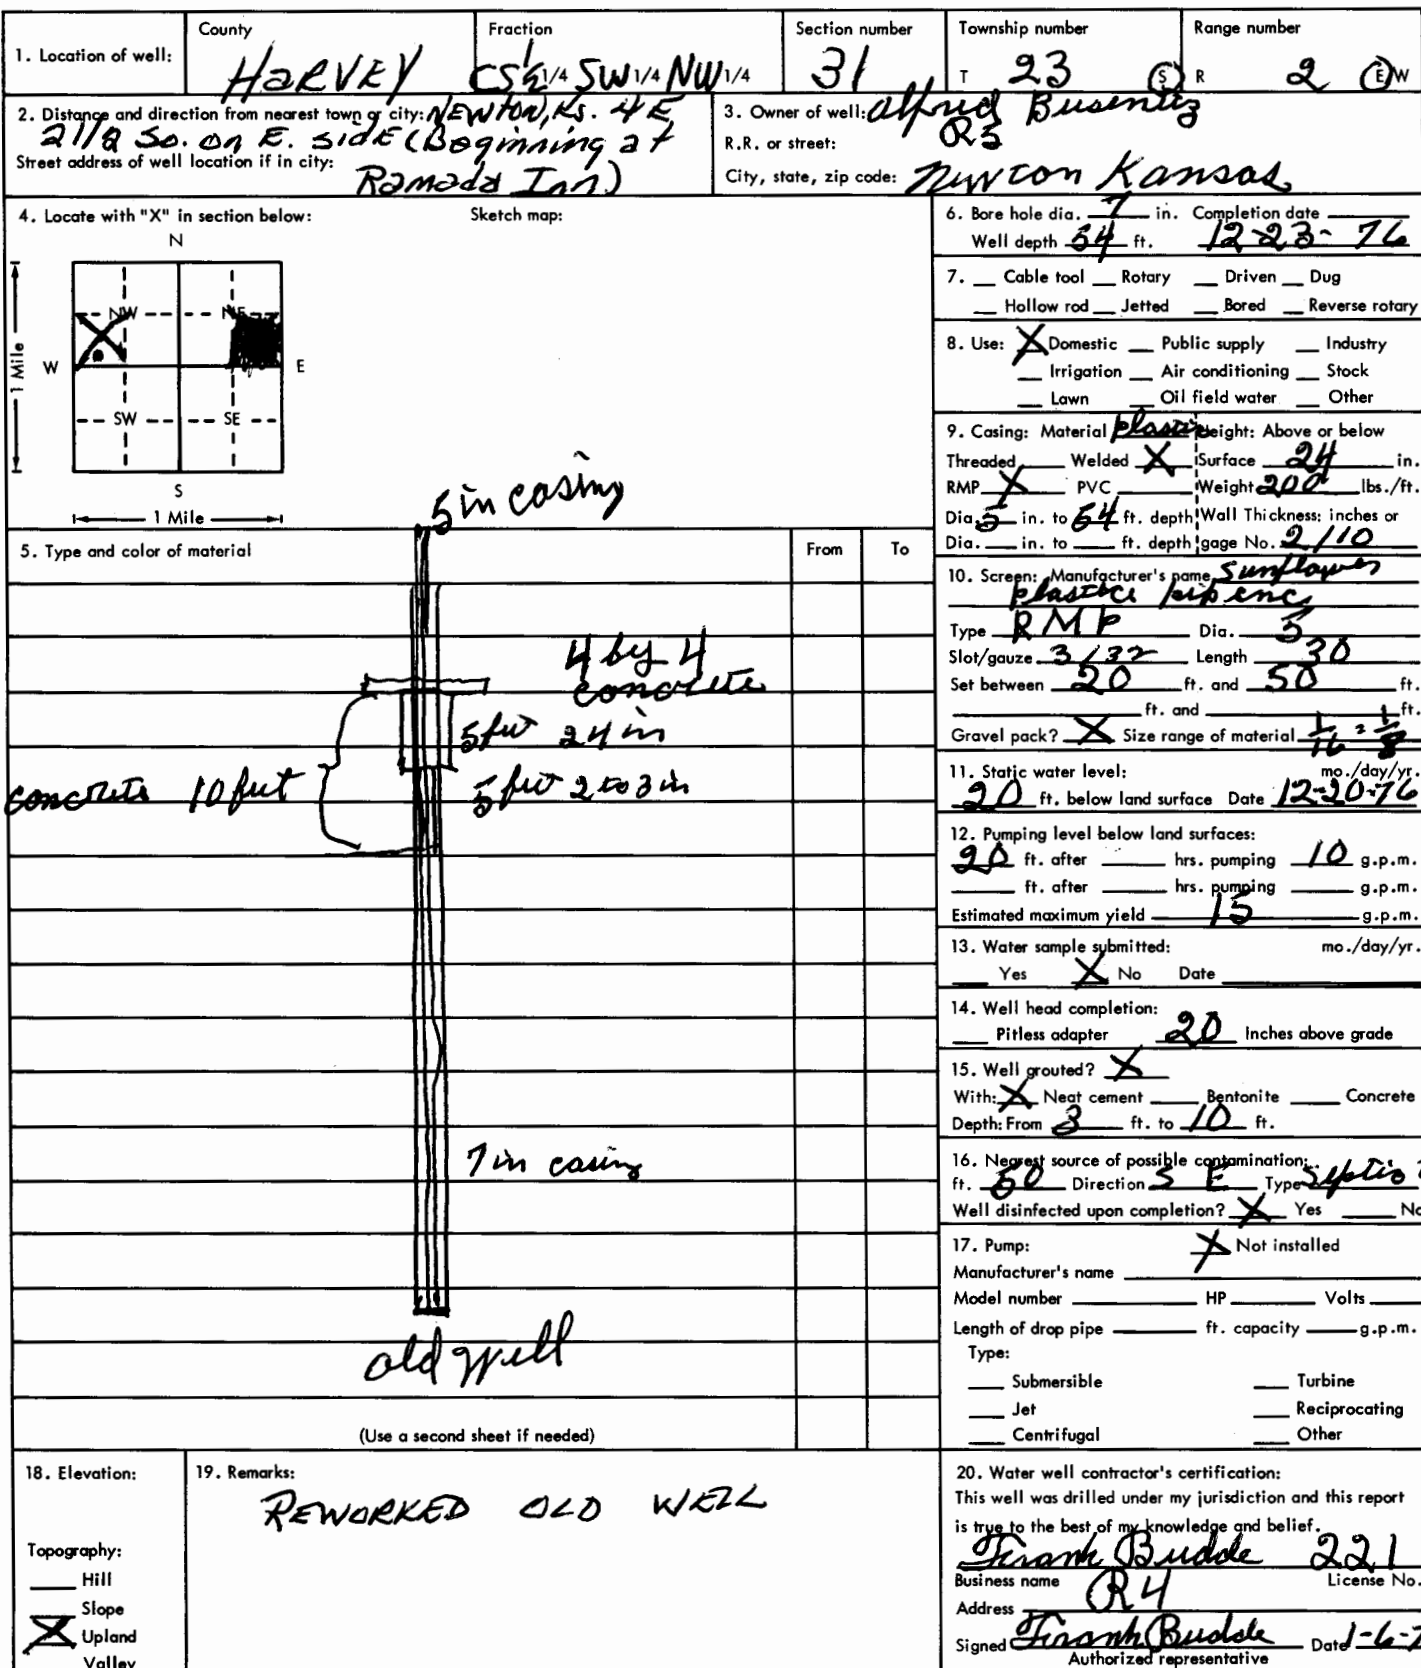 County Fraction Section number Township number Range number
1. Location of well: HARVEY CS½ 1/4 SW 1/4 NW 1/4 31 T 23 S R 2 E W
2. Distance and direction from nearest town or city: NEWTON, KS. 4 E
2 1/2 So. on E. side (Beginning at
Street address of well location if in city: Ramada Inn)
3. Owner of well: Alfred
R.R. or street: R3
City, state, zip code: Newton Kansas
4. Locate with "X" in section below: Sketch map:
N
NW NE
W E
1 Mile
SW SE
S
1 Mile
5 in casing
5. Type and color of material From To
4 by 4
concrete
5 feet 24 in
concrete 10 feet 5 feet 2 to 3 in
7 in casing
old well
(Use a second sheet if needed)
6. Bore hole dia. 7 in. Completion date
Well depth 54 ft. 12-23-76
7. Cable tool Rotary Driven Dug
Hollow rod Jetted Bored Reverse rotary
8. Use: X Domestic Public supply Industry
Irrigation Air conditioning Stock
Lawn Oil field water Other
9. Casing: Material plastic Height: Above or below
Threaded Welded X Surface 24 in.
RMP X PVC Weight 200 lbs./ft.
Dia. 5 in. to 54 ft. depth Wall Thickness: inches or
Dia. in. to ft. depth gage No. 2/10
10. Screen: Manufacturer's name Sunflower
plastic pip
Type RMP Dia. 5
Slot/gauze 3/32 Length 30
Set between 20 ft. and 50 ft.
ft. and ft.
Gravel pack? X Size range of material 1/16 1/8
11. Static water level: mo./day/yr.
20 ft. below land surface Date 12-20-76
12. Pumping level below land surfaces:
20 ft. after hrs. pumping 10 g.p.m.
ft. after hrs. pumping g.p.m.
Estimated maximum yield 15 g.p.m.
13. Water sample submitted: mo./day/yr.
Yes X No Date
14. Well head completion:
Pitless adapter 20 Inches above grade
15. Well grouted? X
With: X Neat cement Bentonite Concrete
Depth: From 3 ft. to 10 ft.
16. Nearest source of possible contamination:
ft. 50 Direction S E Type Septic
Well disinfected upon completion? X Yes No
17. Pump: X Not installed
Manufacturer's name
Model number HP Volts
Length of drop pipe ft. capacity g.p.m.
Type:
Submersible Turbine
Jet Reciprocating
Centrifugal Other
18. Elevation:
Topography:
Hill
Slope
X Upland
Valley
19. Remarks:
REWORKED OLD WELL
20. Water well contractor's certification:
This well was drilled under my jurisdiction and this report
is true to the best of my knowledge and belief.
Frank Budde 221
Business name License No.
Address R4
Signed Frank Budde Date 1-6-7
Authorized representative